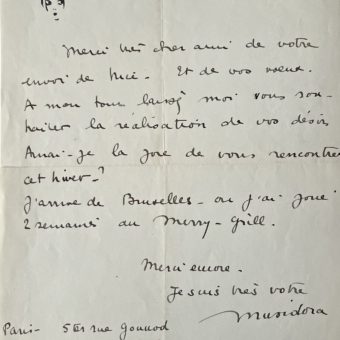 Merci très cher ami de votre
envoi de Nice - Et de vos voeux.
A mon tour laissez moi vous sou-
haiter la réalisation de vos désirs
Aurai-je la joie de vous rencontrer
cet hiver-?
J'arrive de Bruxelles - où j'ai joué
2 semaines au Merry-Grill.
Merci encore.
Je suis très votre
Musidora
Paris- 5 rue Gounod